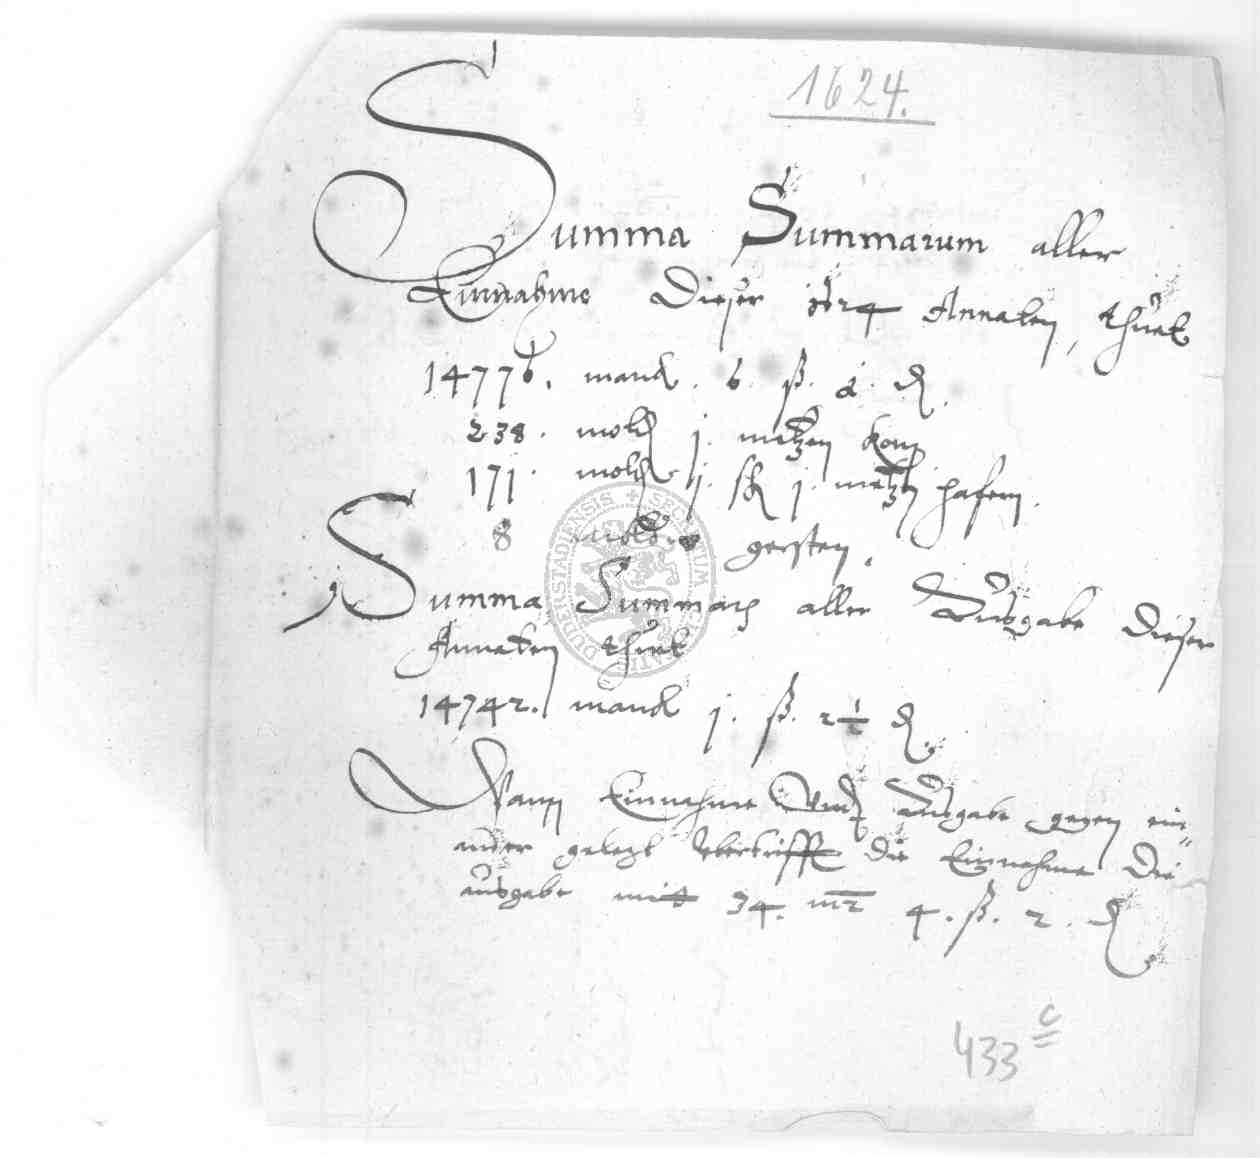 1624.
Summa Summarum aller
Einnahme dieser Annaten, thuet
14776. marck. 6. ß. ₰.
238. mold j. metzen Korn
171. mold j. j. metzen hafern.
8 gersten.
Summa Summarum aller Ausgabe dieser
Annaten thuet
14742. marck j. ß. 2½ ₰.
Wann Einnahme Vnd Ausgabe gegen ein„
ander gelegt vbertrifft die Einnahme die
ausgabe mitt 34. mr 4. ß. 2. ₰
433 c
SECRETUM DUDERSTADIENSIS